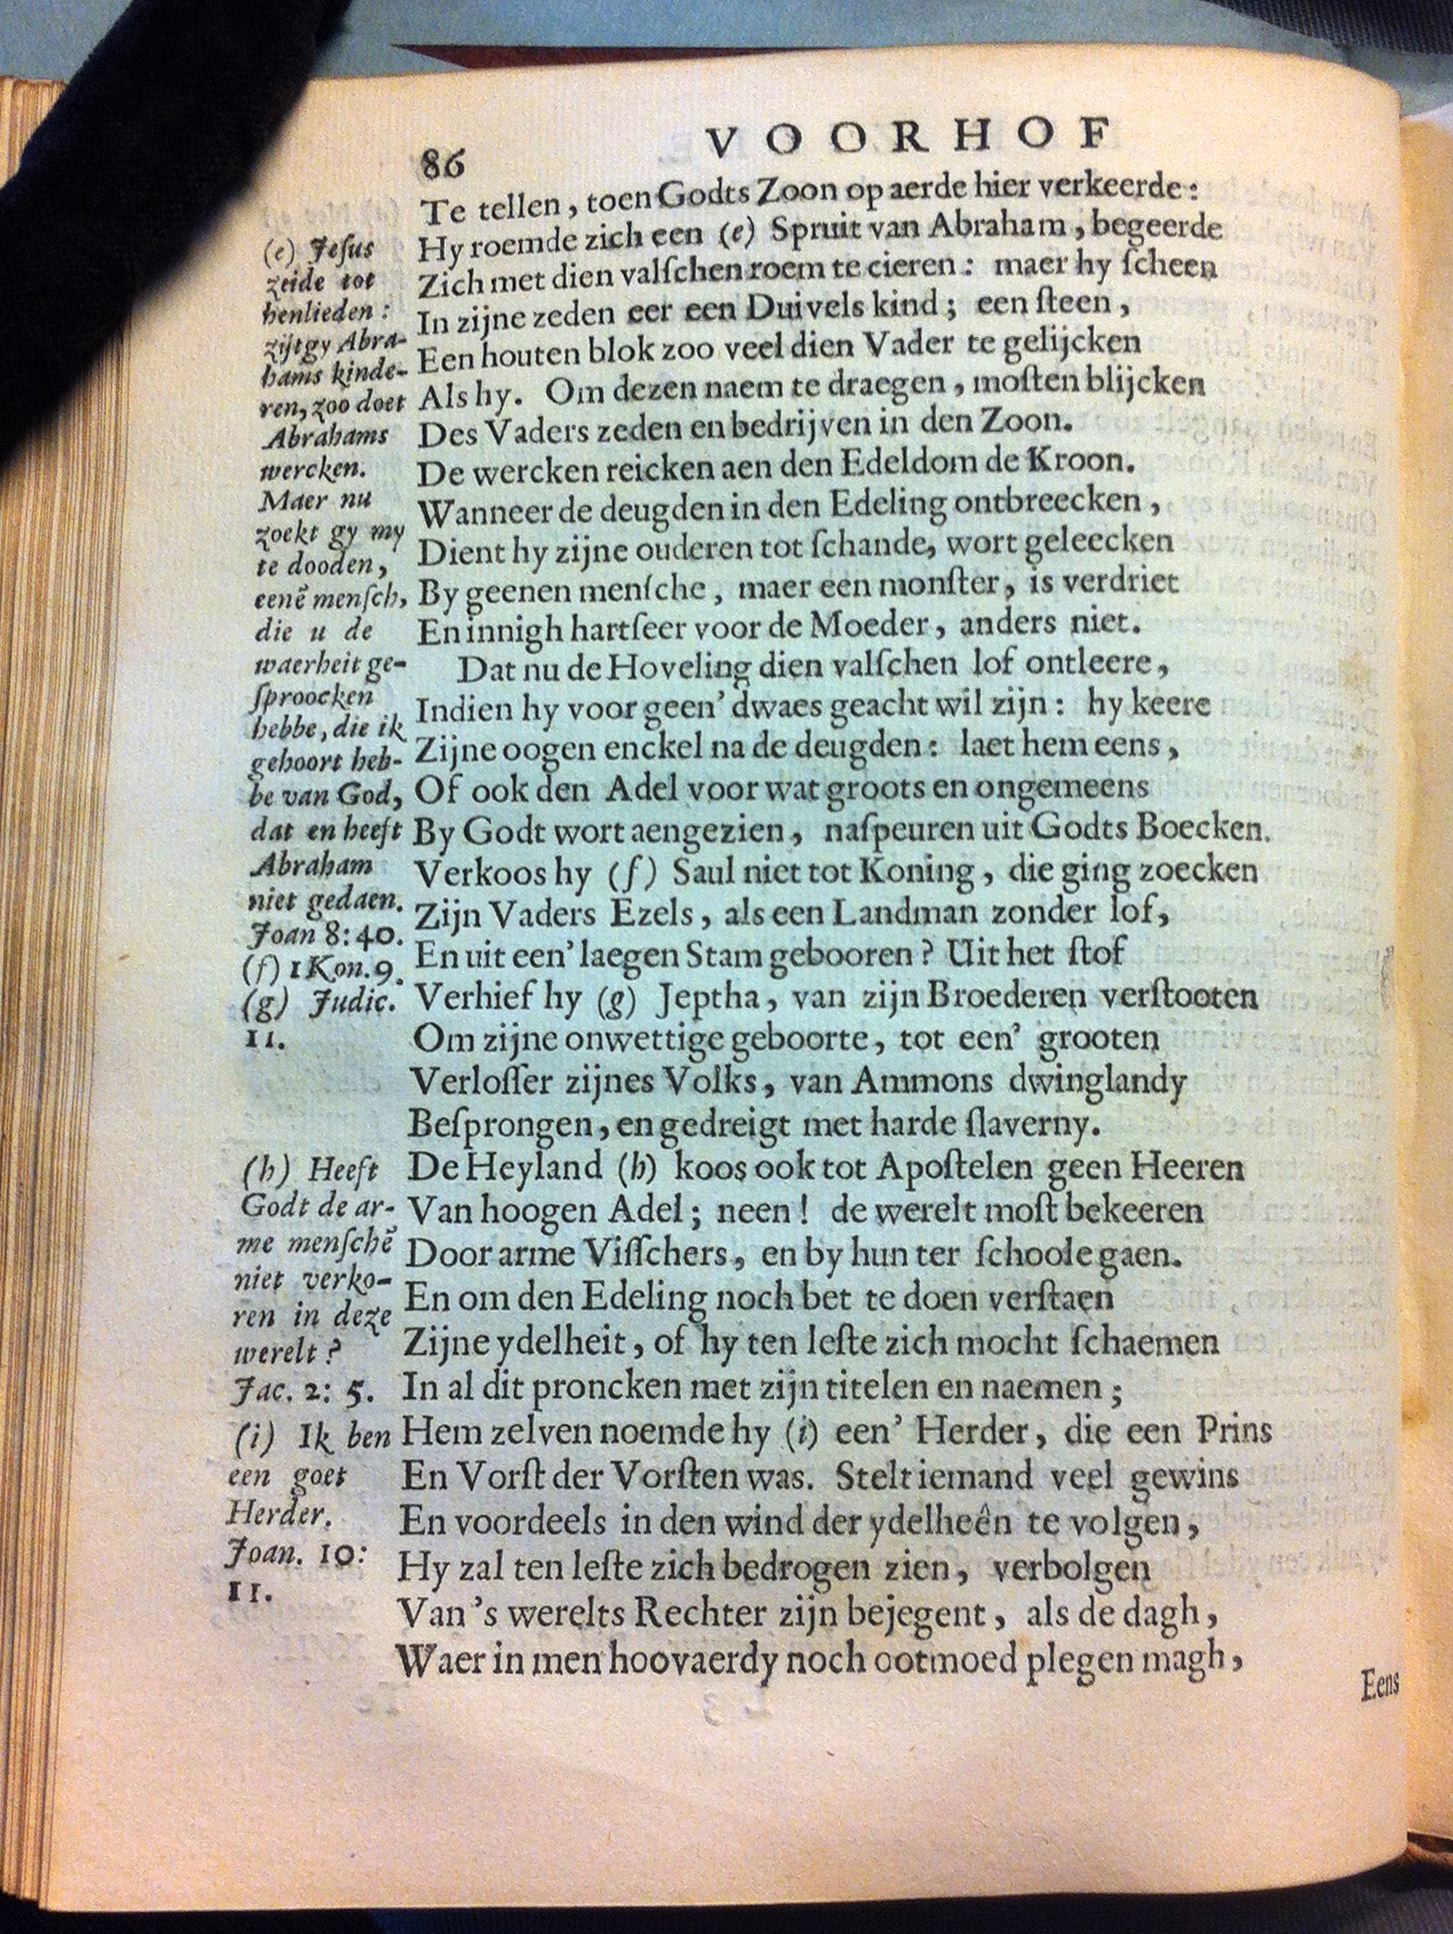 86
VOORHOF
Te tellen, toen Godts Zoon op aerde hier verkeerde:
Hy roemde zich een (e) Spruit van Abraham, begeerde
Zich met dien valſchen roem te cieren: maer hy ſcheen
In zijne zeden eer een Duivels kind; een ſteen,
Een houten blok zoo veel dien Vader te gelijcken
Als hy. Om dezen naem te draegen, moſten blijcken
Des Vaders zeden en bedrijven in den Zoon.
De wercken reicken aen den Edeldom de Kroon.
Wanneer de deugden in den Edeling ontbreecken,
Dient hy zijne ouderen tot ſchande, wort geleecken
By geenen menſche, maer een monſter, is verdriet
En innigh hartſeer voor de Moeder, anders niet.
Dat nu de Hoveling dien valſchen lof ontleere,
Indien hy voor geen' dwaes geacht wil zijn: hy keere
Zijne oogen enckel na de deugden: laet hem eens,
Of ook den Adel voor wat groots en ongemeens
By Godt wort aengezien, naſpeuren uit Godts Boecken.
Verkoos hy (f) Saul niet tot Koning, die ging zoecken
Zijn Vaders Ezels, als een Landman zonder lof,
En uit een' laegen Stam gebooren? Uit het ſtof
Verhief hy (g) Jeptha, van zijn Broederen verſtooten
Om zijne onwettige geboorte, tot een' grooten
Verloſſer zijnes Volks, van Ammons dwinglandy
Beſprongen, en gedreigt met harde ſlaverny.
De Heyland (h) koos ook tot Apoſtelen geen Heeren
Van hoogen Adel; neen! de werelt moſt bekeeren
Door arme Viſſchers, en by hun ter ſchoole gaen.
En om den Edeling noch bet te doen verſtaen
Zijne ydelheit, of hy ten leſte zich mocht ſchaemen
In al dit proncken met zijn titelen en naemen;
Hem zelven noemde hy (i) een' Herder, die een Prins
En Vorſt der Vorſten was. Stelt iemand veel gewins
En voordeels in den wind der ydelheên te volgen,
Hy zal ten leſte zich bedrogen zien, verbolgen
Van 's werelts Rechter zijn bejegent, als de dagh,
Waer in men hoovaerdy noch ootmoed plegen magh,
Eens
(e) Jeſus
zeide tot
henlieden:
zijt gy Abra-
hams kinde-
ren, zoo doet
Abrahams
wercken.
Maer nu
zoekt gy my
te dooden,
eenē menſch,
die u de
waerheit ge-
ſproocken
hebbe, die ik
gehoort heb-
be van God,
dat en heeft
Abraham
niet gedaen.
Joan 8:40.
(f) 1 Kon. 9.
(g) Judic.
11.
(h) Heeft
Godt de ar-
me menſchē
niet verko-
ren in deze
werelt?
Jac. 2: 5.
(i) Ik ben
een goet
Herder.
Joan. 10:
11.